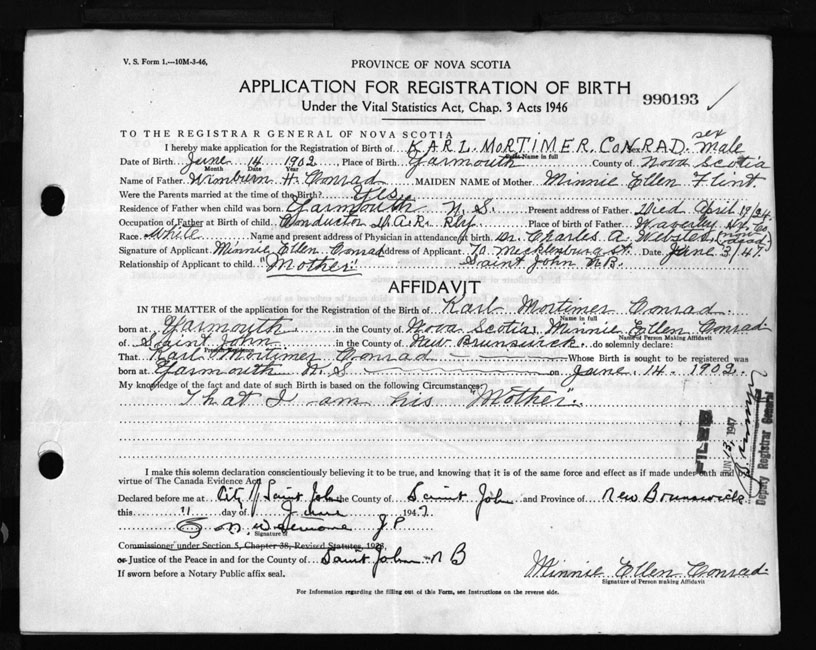 V. S. Form 1.—10M-3-46.
PROVINCE OF NOVA SCOTIA
APPLICATION FOR REGISTRATION OF BIRTH
990193
Under the Vital Statistics Act, Chap. 3 Acts 1946
TO THE REGISTRAR GENERAL OF NOVA SCOTIA
I hereby make application for the Registration of Birth of KARL MORTIMER CONRAD. sex male
Name in full
Date of Birth June 14 1902 Place of Birth Yarmouth County of Nova Scotia
Month Date Year
Name of Father Wimburn H. Conrad MAIDEN NAME of Mother Minnie Ellen Flint.
Were the Parents married at the time of the Birth? Yes
Residence of Father when child was born Yarmouth N.S. Present address of Father Died April 19/34.
Occupation of Father at Birth of child Conductor D.A.R. Rly Place of birth of Father Waverley
Race White Name and present address of Physician in attendance at birth Dr. Charles A. Webster (now dead)
Signature of Applicant Minnie Ellen Conrad Address of Applicant 70 Mecklenburg St. Date June 3/47.
Relationship of Applicant to child "Mother" Saint John N.B.
AFFIDAVIT
IN THE MATTER of the application for the Registration of the Birth of Karl Mortimer Conrad
Name in full
born at Yarmouth in the County of Nova Scotia, Minnie Ellen Conrad
Name of Person Making Affidavit
of Saint John in the County of New Brunswick do solemnly declare:
That Karl Mortimer Conrad Whose Birth is sought to be registered was
born at Yarmouth N.S on June 14. 1902.
My knowledge of the fact and date of such Birth is based on the following Circumstances:
That I am his "Mother".
FILED
JUN 13 1947
Deputy Registrar General
I make this solemn declaration conscientiously believing it to be true, and knowing that it is of the same force and effect as if made under oath and by
virtue of The Canada Evidence Act.
Declared before me at City of Saint John the County of Saint John and Province of New Brunswick
this 11 day of June 1947
J P
Signature of
Commissioner under Section 5, Chapter 38, Revised Statutes, 1923,
or Justice of the Peace in and for the County of Saint John N B
Minnie Ellen Conrad
Signature of Person making Affidavit
If sworn before a Notary Public affix seal.
For Information regarding the filling out of this Form, see Instructions on the reverse side.